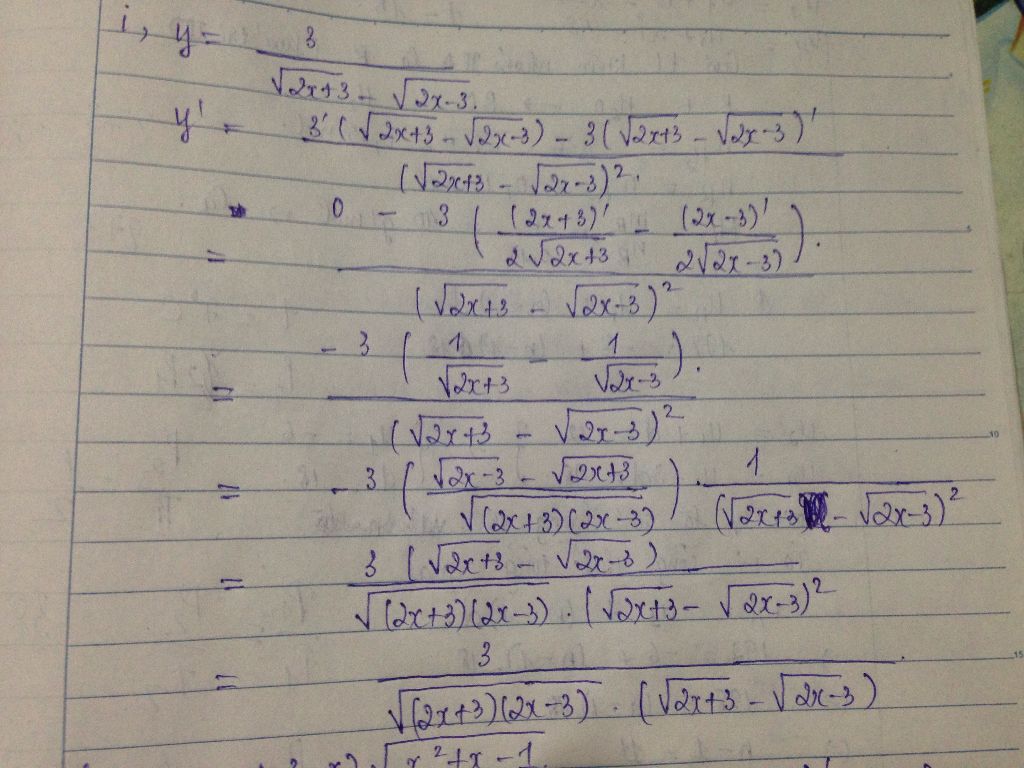 i, y = 3 / (√(2x+3) - √(2x-3)).
y' = (3'(√(2x+3) - √(2x-3)) - 3(√(2x+3) - √(2x-3))') / (√(2x+3) - √(2x-3))².
= (0 - 3((2x+3)' / (2√(2x+3)) - (2x-3)' / (2√(2x-3)))) / (√(2x+3) - √(2x-3))².
= (-3(1/√(2x+3) - 1/√(2x-3))) / (√(2x+3) - √(2x-3))².
= -3((√(2x-3) - √(2x+3)) / √((2x+3)(2x-3))) . 1 / (√(2x+3) - √(2x-3))²
= 3(√(2x+3) - √(2x-3)) / (√((2x+3)(2x-3)) . (√(2x+3) - √(2x-3))²)
= 3 / (√((2x+3)(2x-3)) . (√(2x+3) - √(2x-3))).
√(x²+x-1)
10
15